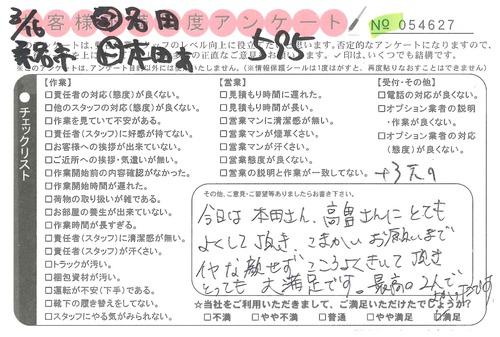 お客様満足度アンケート
№ 054627
3/16
585
□は、いくつでも結構です。
チェックリスト
【作業】
□責任者の対応(態度)が良くない。
□他のスタッフの対応(態度)が良くない。
□作業を見ていて不安がある。
□責任者(スタッフ)に好感が持てない。
□お客様への挨拶が出来ていない。
□ご近所への挨拶・気遣いが無い。
□作業開始前の内容確認がなかった。
□作業開始時間が遅れた。
□荷物の取り扱いが雑である。
□お部屋の養生が出来ていない。
□作業時間が長すぎる。
□責任者(スタッフ)に清潔感が無い。
□責任者(スタッフ)が汗くさい。
□トラックが汚い。
□梱包資材が汚い。
□運転が不安(下手)である。
□靴下の履き替えをしてない。
□スタッフにやる気がみられない。
【営業】
□見積もり時間に遅れた。
□見積もり時間が長い。
□営業マンに清潔感が無い。
□営業マンが煙草くさい。
□営業マンが汗くさい。
□営業態度が良くない。
□営業の説明と作業が一致してない。
【受付・その他】
□電話の対応が良くない。
□オプション業者の説明
・作業が良くない。
□オプション業者の対応
(態度)が良くない。
その他、ご意見・ご要望等ありましたらお書き下さい。
今日は本田さん、高畠さんにとても
よくして頂き、こまかいお願いまで
イヤな顔せず こころよくきいて頂き
とっても大満足です。最高の2人で
☆当社をご利用いただきまして、ご満足いただけたでしょうか?
□不満 □やや不満 □普通 □やや満足 □満足